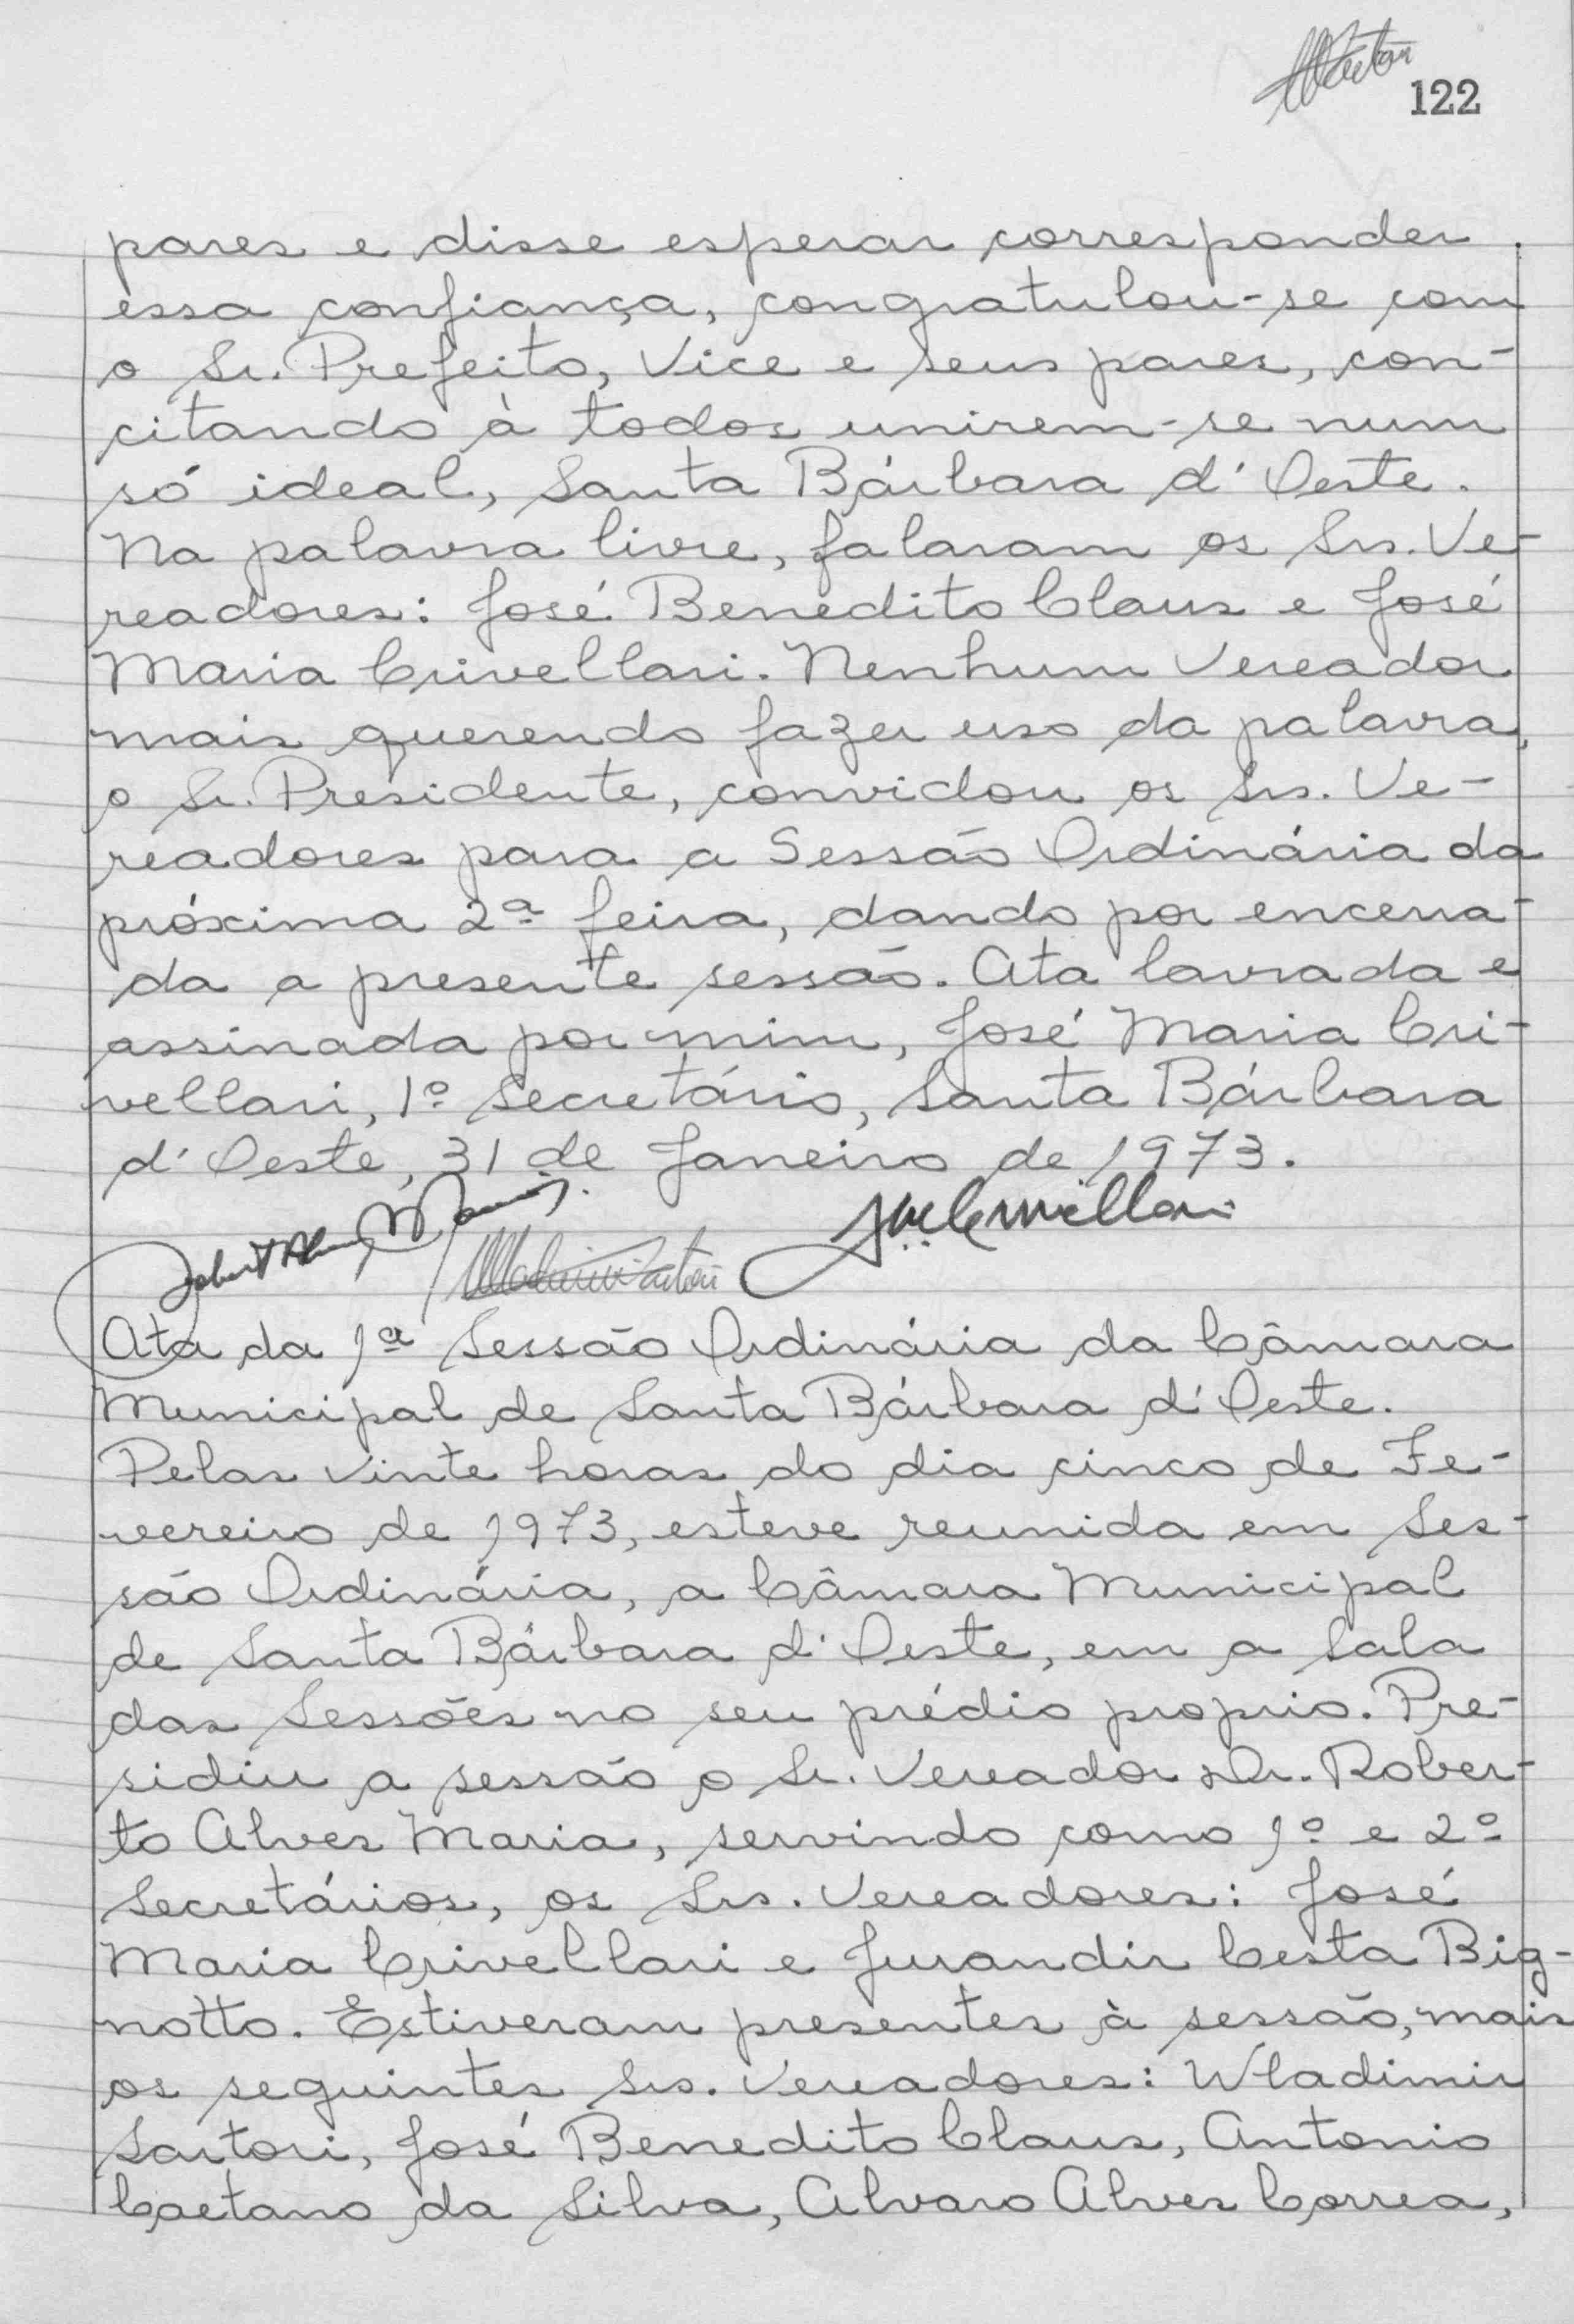 122
pares e disse esperar corresponder
essa confiança, congratulou-se com
o Sr. Prefeito, Vice e seus pares, con-
citando à todos unirem-se num
só ideal, Santa Bárbara d'Oeste.
Na palavra livre, falaram os Srs. Ve-
readores: José Benedito Claus e José
Maria Crivellari. Nenhum Vereador
mais querendo fazer uso da palavra,
o Sr. Presidente, convidou os Srs. Ve-
readores para a Sessão Ordinária da
próxima 2ª feira, dando por encerra-
da a presente sessão. Ata lavrada e
assinada por mim, José Maria Cri-
vellari, 1º Secretário, Santa Bárbara
d'Oeste, 31 de Janeiro de 1973.
Ata da 1ª Sessão Ordinária da Câmara
Municipal de Santa Bárbara d'Oeste.
Pelas vinte horas do dia cinco de Fe-
vereiro de 1973, esteve reunida em Ses-
são Ordinária, a Câmara Municipal
de Santa Bárbara d'Oeste, em a Sala
das Sessões no seu prédio proprio. Pre-
sidiu a sessão o Sr. Vereador Dr. Rober-
to Alves Maria, servindo como 1º e 2º
Secretários, os Srs. Vereadores: José
Maria Crivellari e Jurandir Cesta Big-
notto. Estiveram presentes à sessão, mais
os seguintes Srs. Vereadores: Wladimir
Sartori, José Benedito Claus, Antonio
Caetano da Silva, Alvaro Alves Correa,